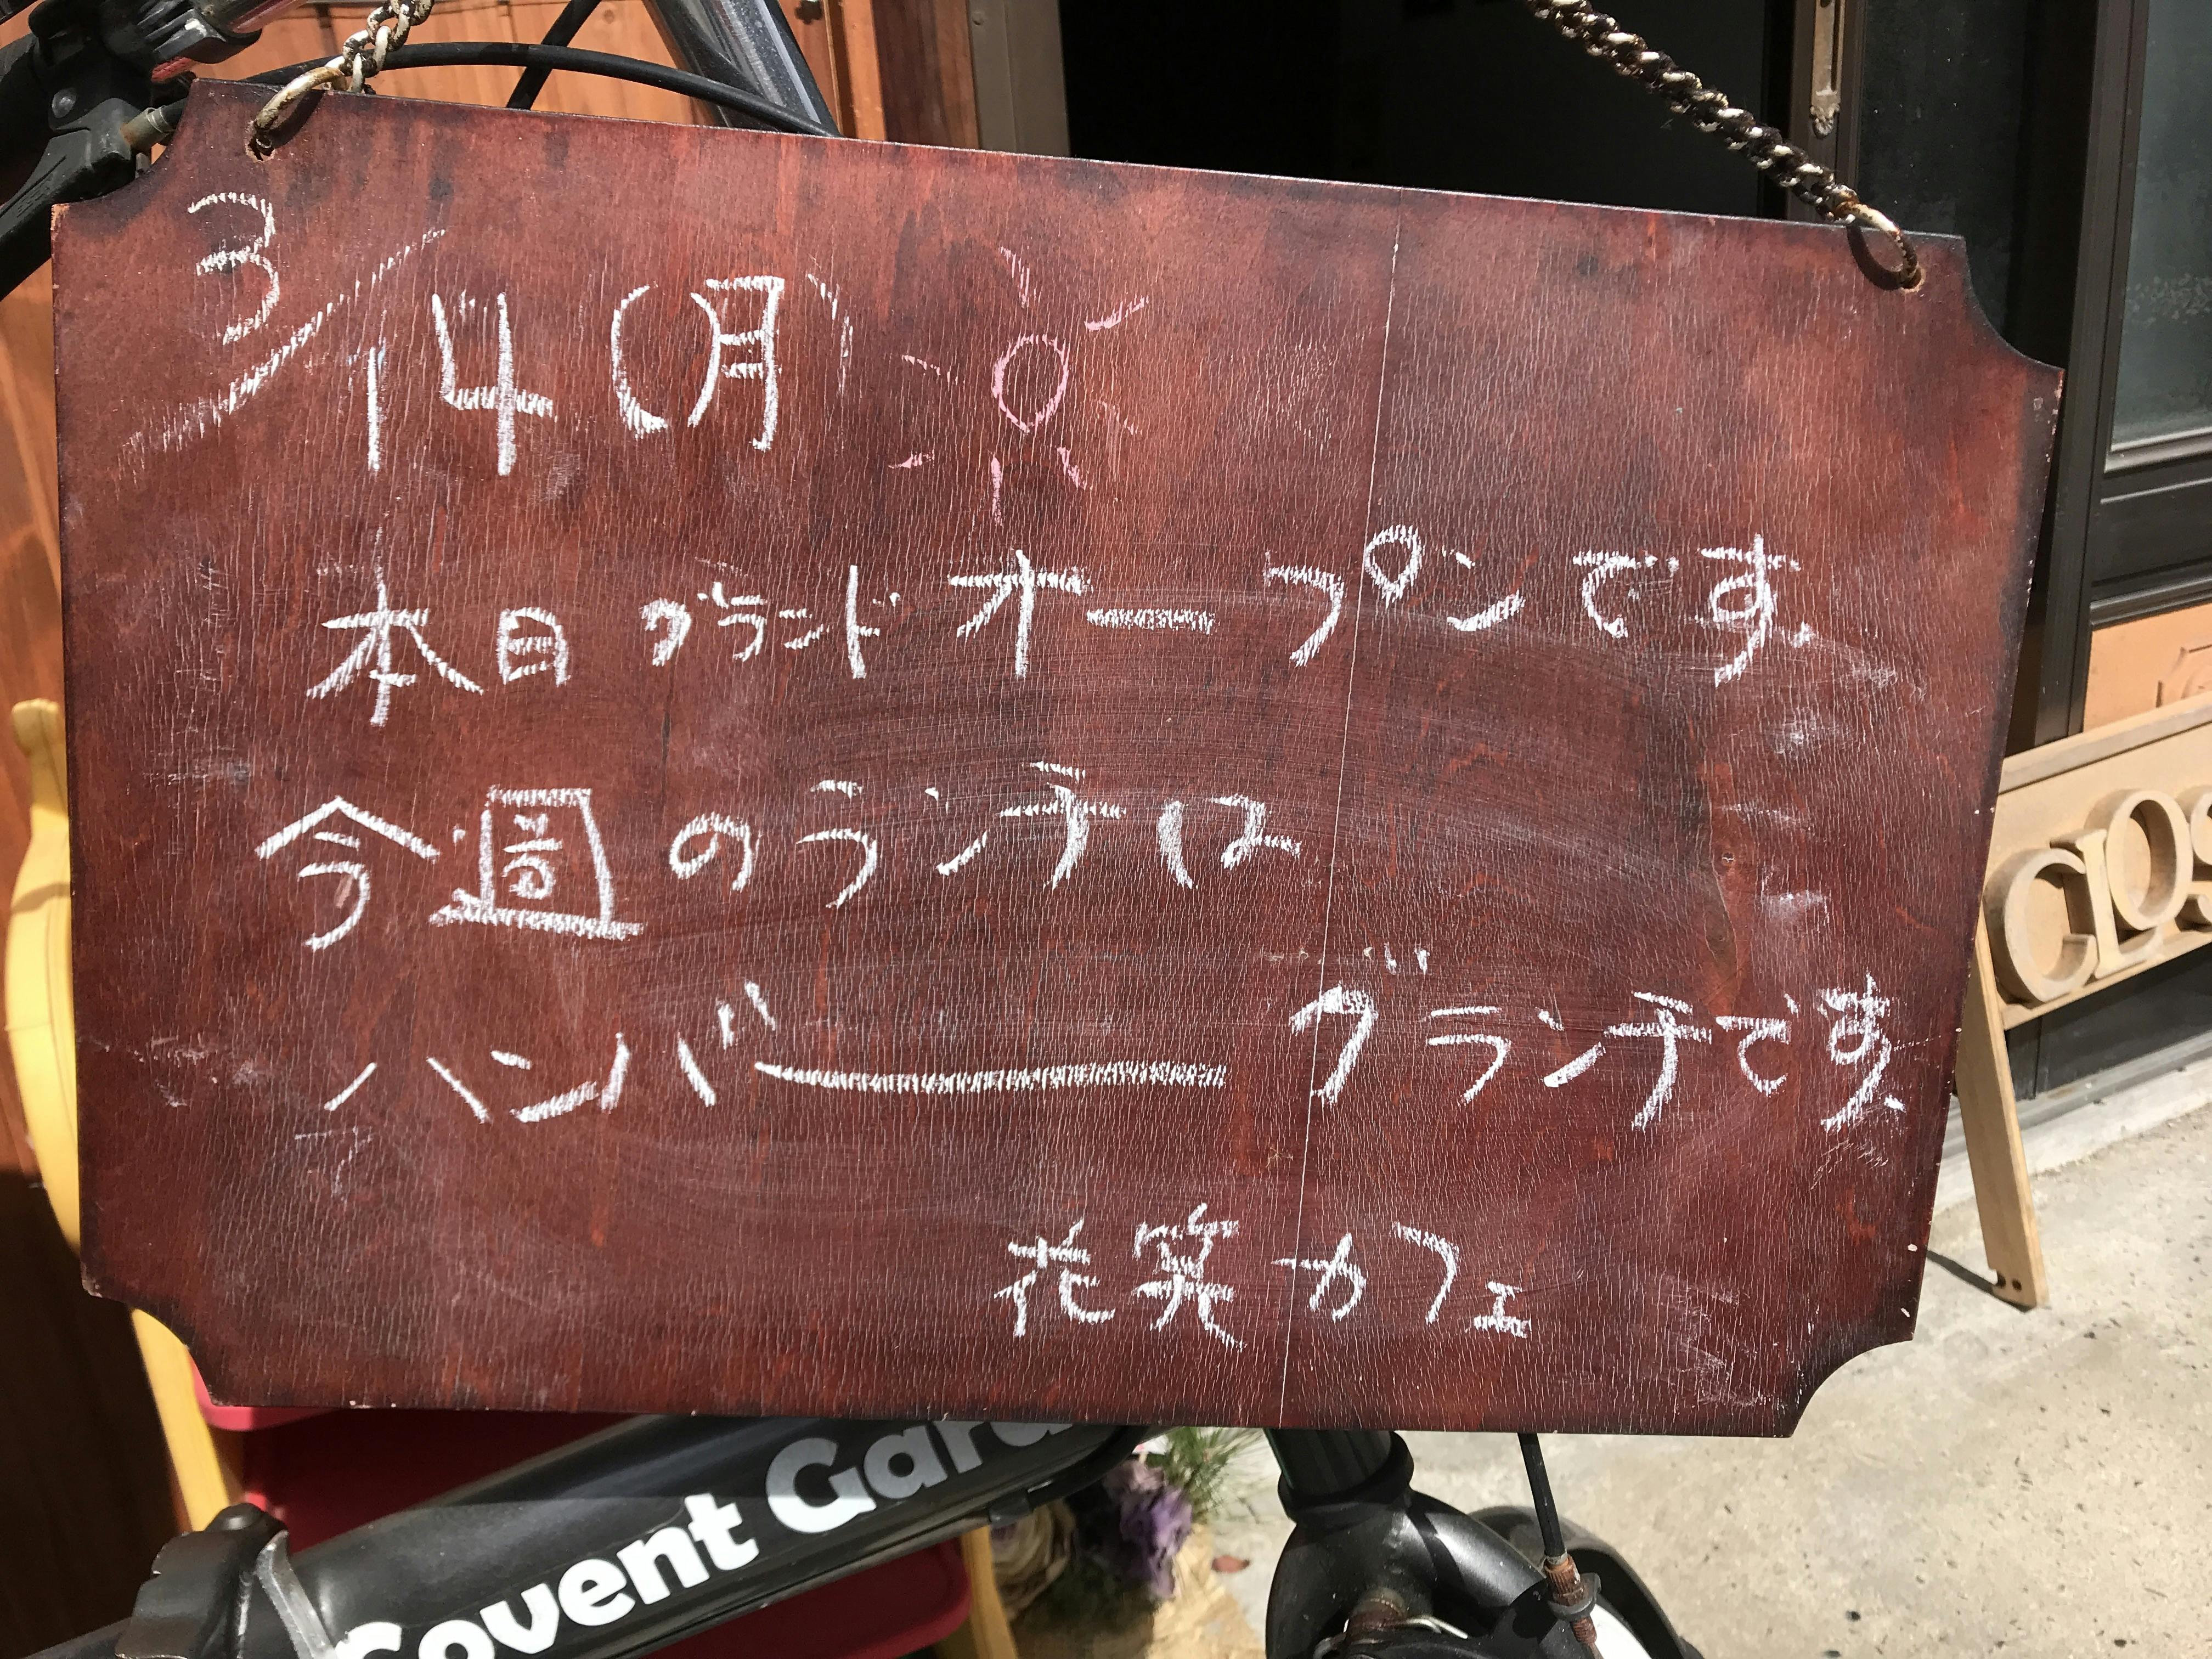 3/14(月)
本日グランドオープンです
今週のランチは
ハンバーーグランチです
花笑カフェ
CLOS
Covent Gard